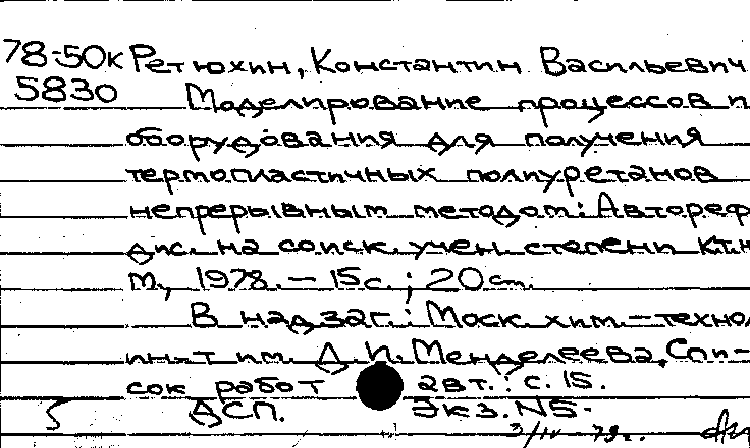 78-50к Ретюхин, Константин Васильевич
5830 Моделирование процессов и
оборудования для получения
термопластичных полиуретанов
непрерывным методом: Автореф
дис. на соиск. учен. степени к.т.н
М., 1978. - 15с.; 20см.
В надзаг.: Моск. хим.-техно
ин-т им. Д.И. Менделеева. Спи-
сок работ авт.: с. 15.
ДСП. Экз. N5.
3/IV-79г.